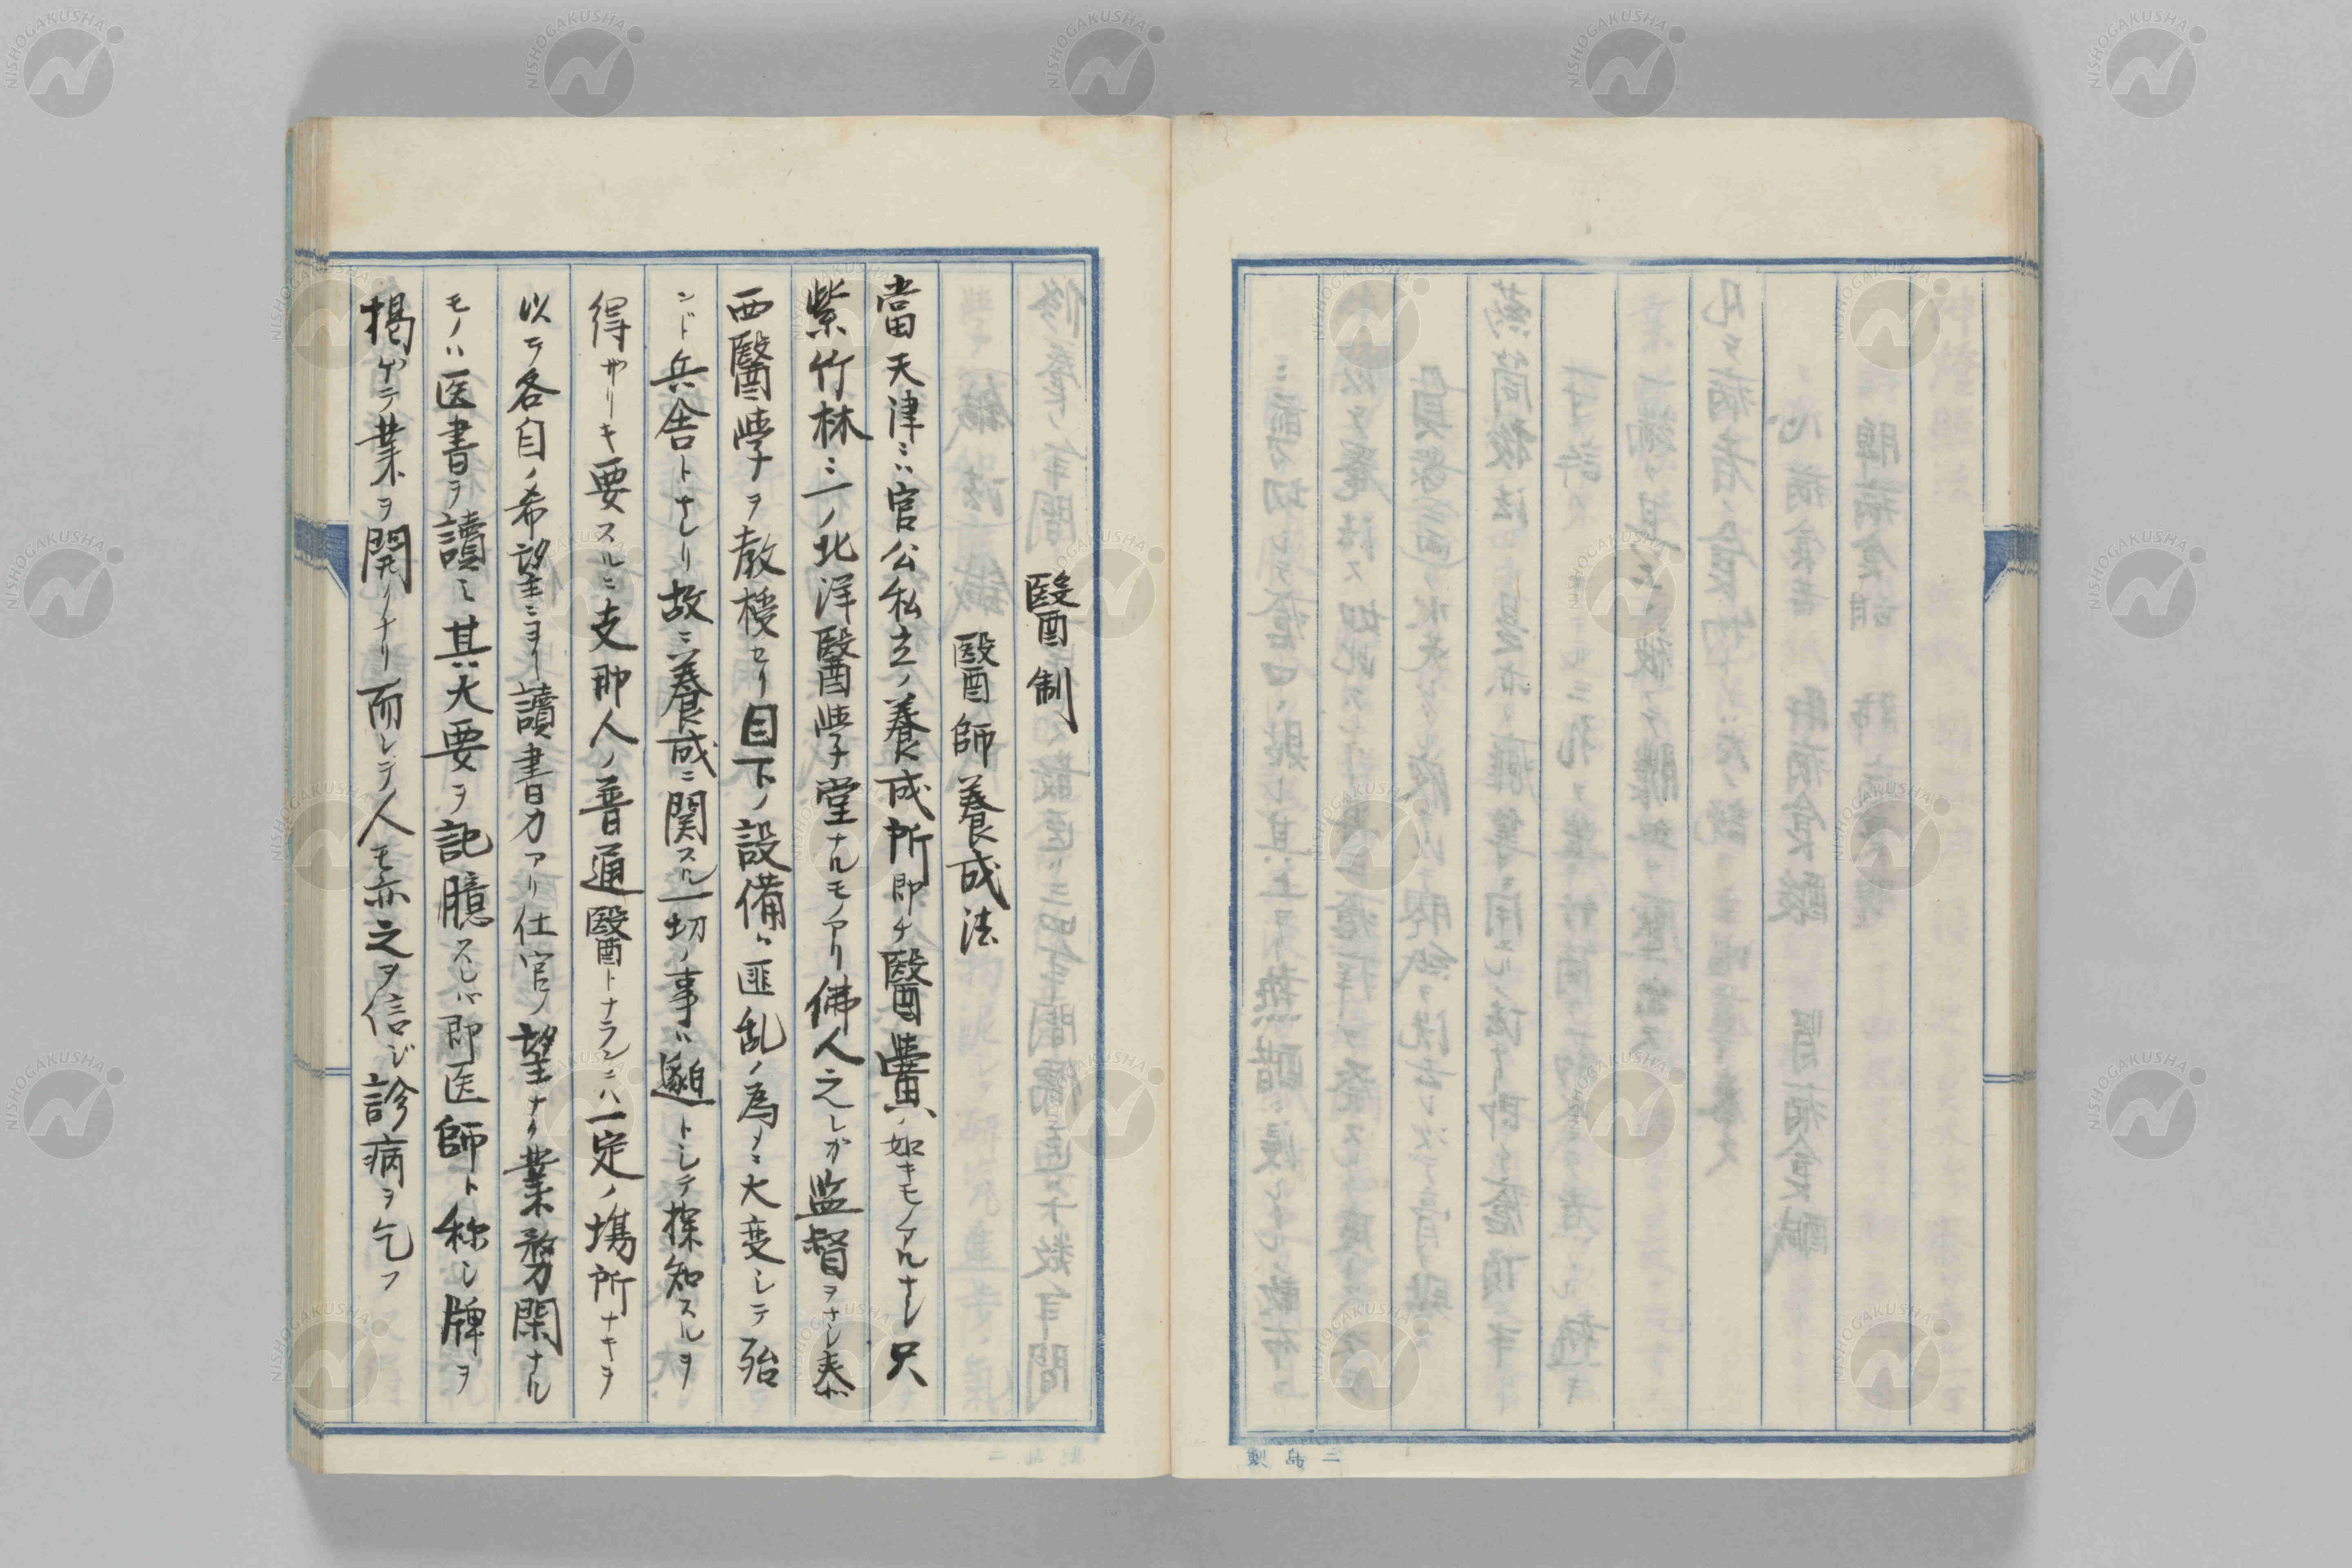 醫制
醫師養成法
當天津ニハ官公私立ノ養成所即チ醫黌ノ如キモノアルナシ只
紫竹林ニ一ノ北洋醫學堂ナルモノアリ佛人之レガ監督ヲナシ泰
西醫學ヲ教授セリ目下ノ設備ハ匪乱ノ為メニ大変シテ殆
ンド兵舎トナレリ故ニ養成ニ関スル一切ノ事ハ邈トシテ探知スルヲ
得ザリキ要スルニ支那人ノ普通醫トナランニハ一定ノ塲所ナキヲ
以テ各自ノ希望ニヨリ讀書力アリ仕官ノ望ナク業務閑ナル
モノハ医書ヲ讀ミ其大要ヲ記臆スレバ即医師ト称シ牌ヲ
掲ゲテ業ヲ開クナリ而シテ人モ亦之ヲ信ジ診病ヲ乞フ
NISHOGAKUSHA